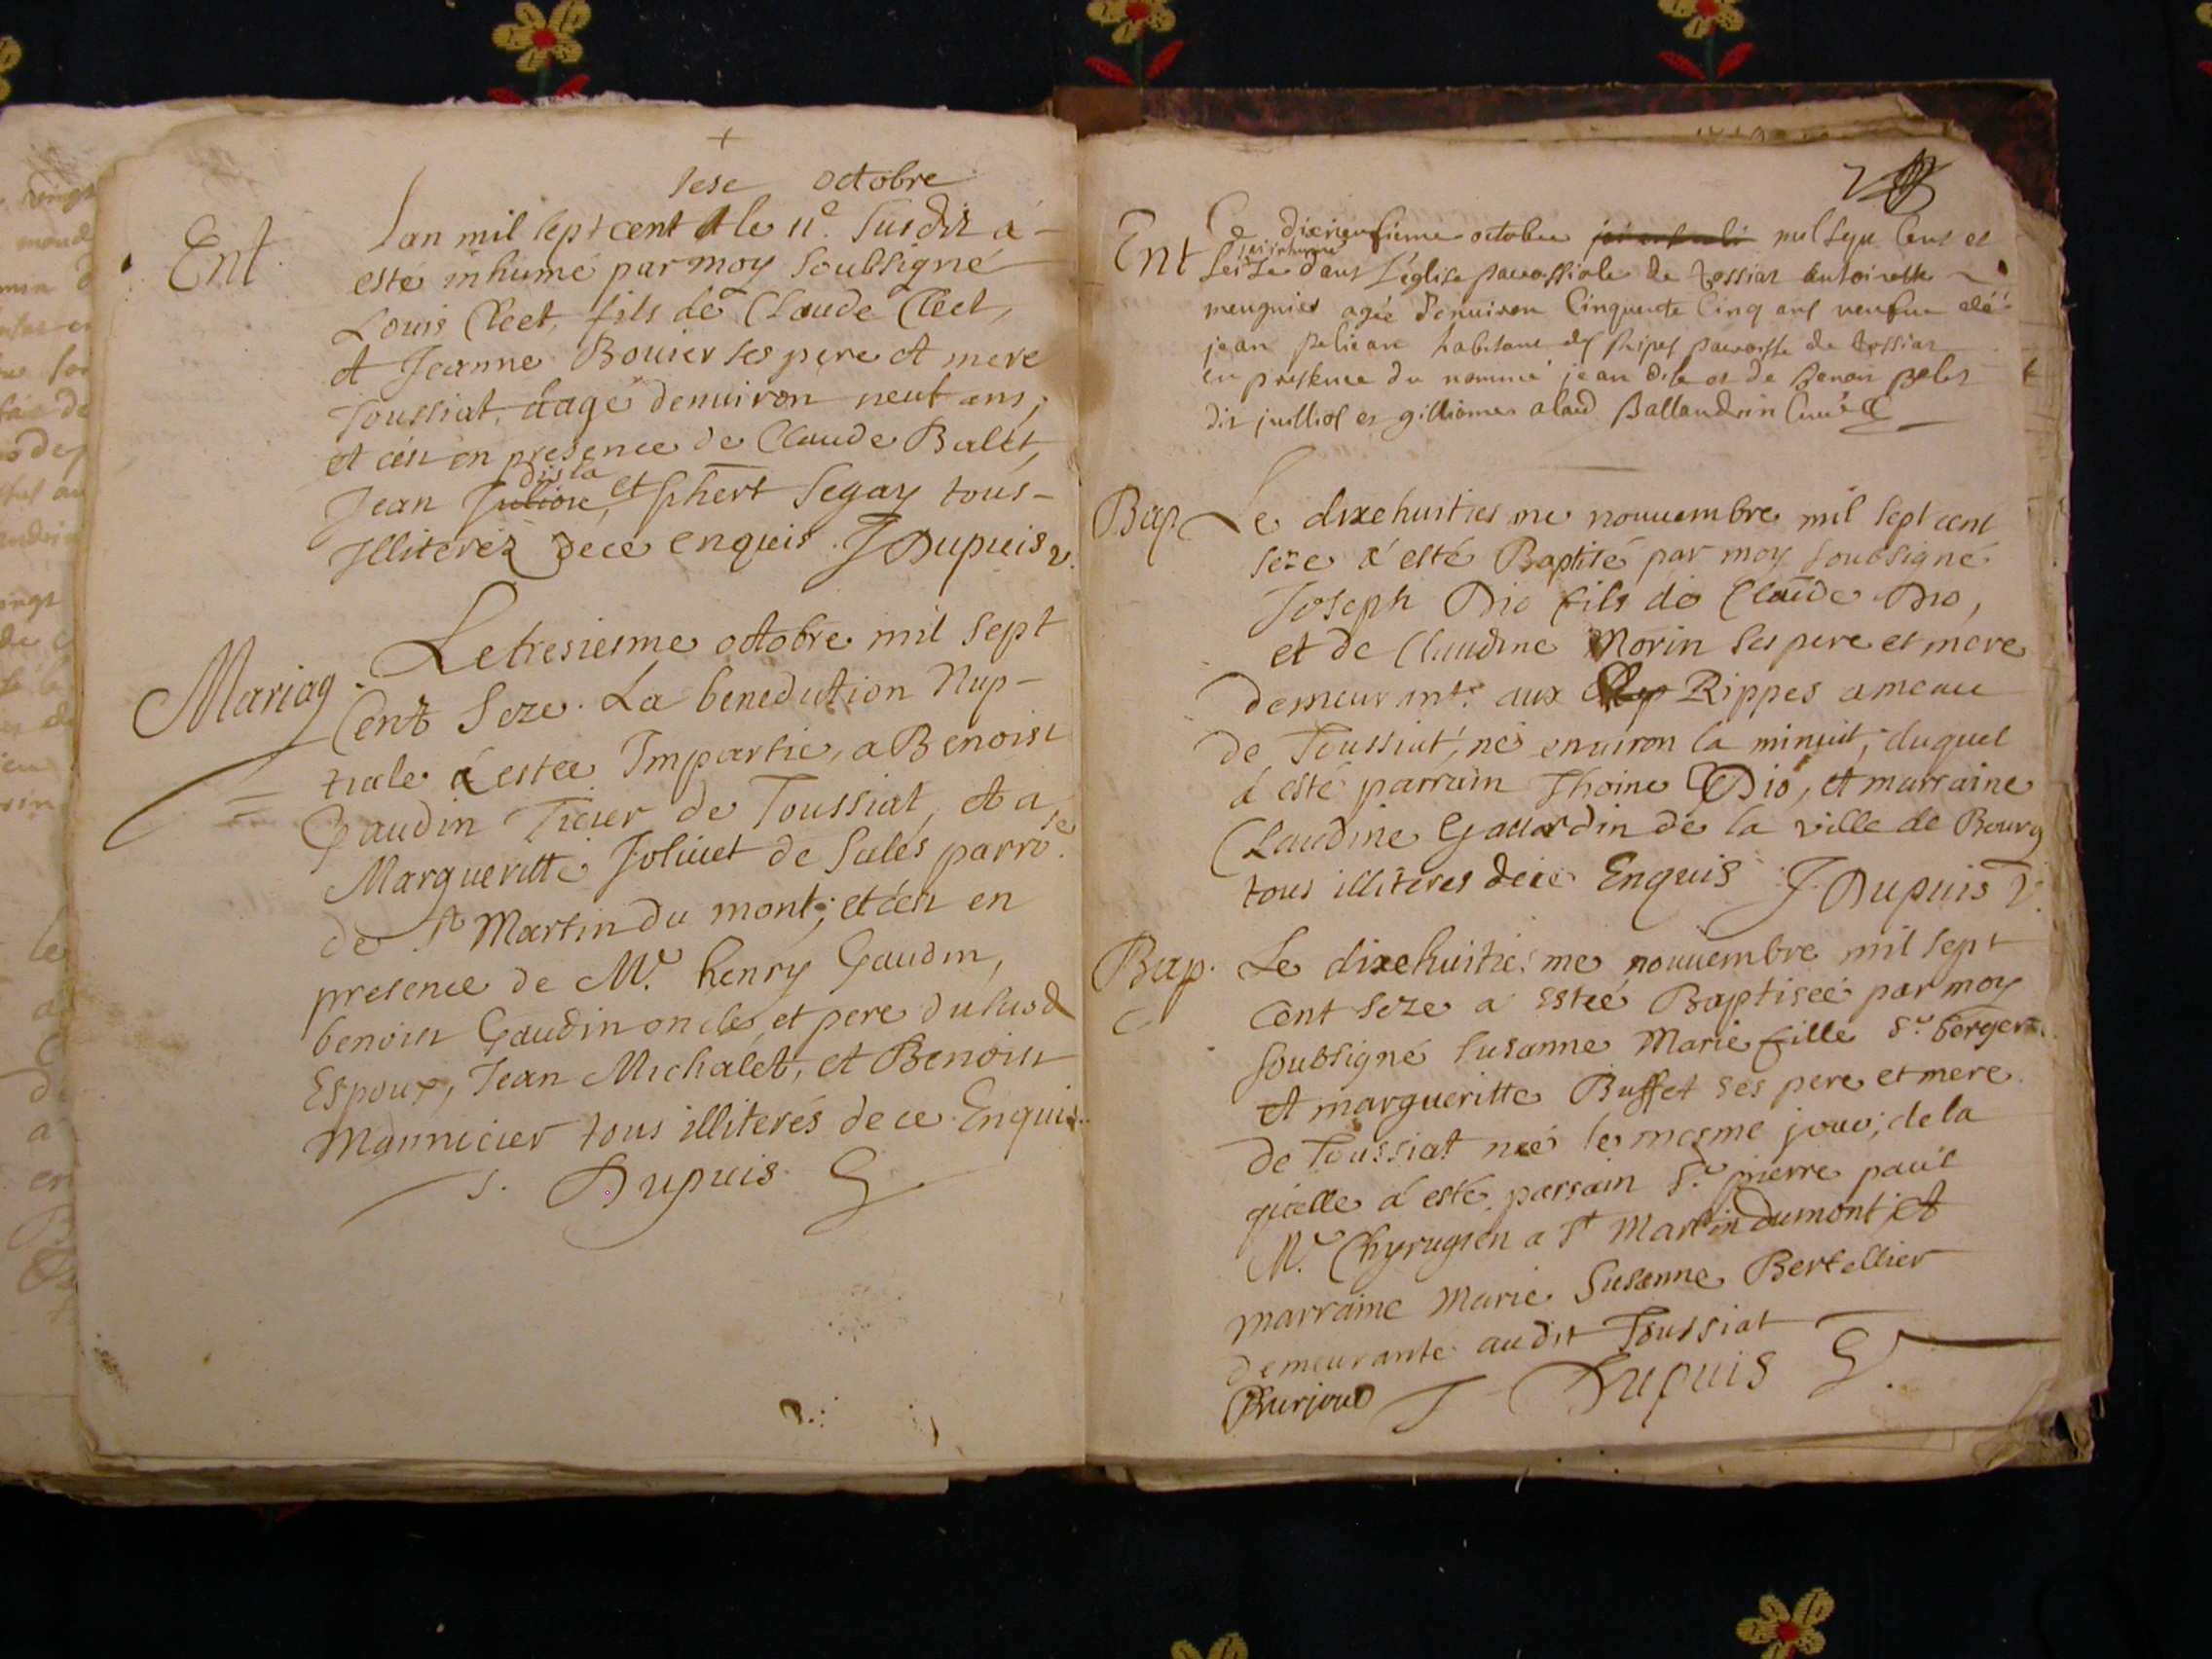 +
sese octobre
Ent
Lan mil sept cent et le 11e. susdit à
esté inhumé par moy soubsigné
Louis Cleet, fils de Claude Cleet,
et Jeanne Bouier ses pere et mere
Toussiat, aagé denuiron neuf ans,
et cén en presence de Claude Balet,
dis la
Jean Julione, et phert Segay tous
Jlliterez dece enqueis. J Dupuis v.
Mariag
Letresiesme octobre mil sept
Cent Seze. La benedution Nup-
tiale à estee Impartie, a Benoist
Gaudin Ticier de Toussiat, et a
Margueritte Joliuet de Salés parro.se
de St Martin du mont; et cén en
presence de Mr. henry Gaudin,
benoist Gaudin oncle, et pere dusus d
Espoux, Jean Michalet, et Benoist
Monnicier tous illiterés de ce Enquis.
J. Dupuis
Ent
Ce dixneufieme octobre mil sept Cent et
jai inhumé
seize dans L'église parroissiale de tossiat antoinette
meugnier agée d'enuiron Cinquente Cinq ans veufue de
jean pelican habitant des Ripes parroisse de tossiat
en presence du nommé jean dela et de Benoit palet
dit juilliot et gilliome alard Ballandrin Curé
Bap
Le dixehuitiesme nouuembre mil sept cent
seze à esté Baptisé par moy soubsigné
Joseph Dio fils de Claude Dio,
et de Claudine Morin ses pere et mere
demeurant. aux Rippes ameau
de Toussiat, né enuiron la minuit, duquel
à esté parrain Thoine Dio, et marraine
Claudine Gallardin de la ville de Bourg
tous illiteres dece Enqueis J. Dupuis V.
Bap.
Le dixehuitiesme nouuembre mil sept
Cent seze a esteé Baptiseé par moy
soubsigné susanne Marie fille Sr. berger
et margueritte Buffet ses pere et mere
de Toussiat neé le mesme jour, dela
quelle à esté parrain Sr. pierre paul
Mr. Chyrugien a St Martin dumont, et
marraine Marie Susanne Bertellier
demeurante audit Toussiat
Burjoud J Dupuis